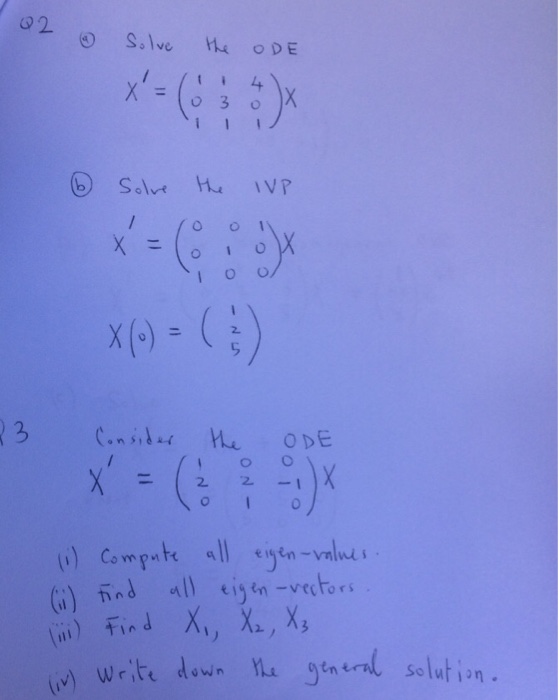 Q2
(a) Solve the ODE
X' = ( 1 1 4
0 3 0
1 1 1 ) X
(b) Solve the IVP
X' = ( 0 0 1
0 1 0
1 0 0 ) X
X(0) = ( 1
2
5 )
3 Consider the ODE
X' = ( 1 0 0
2 2 -1
0 1 0 ) X
(i) Compute all eigen-values.
(ii) Find all eigen-vectors.
(iii) Find X₁, X₂, X₃
(iv) Write down the general solution.